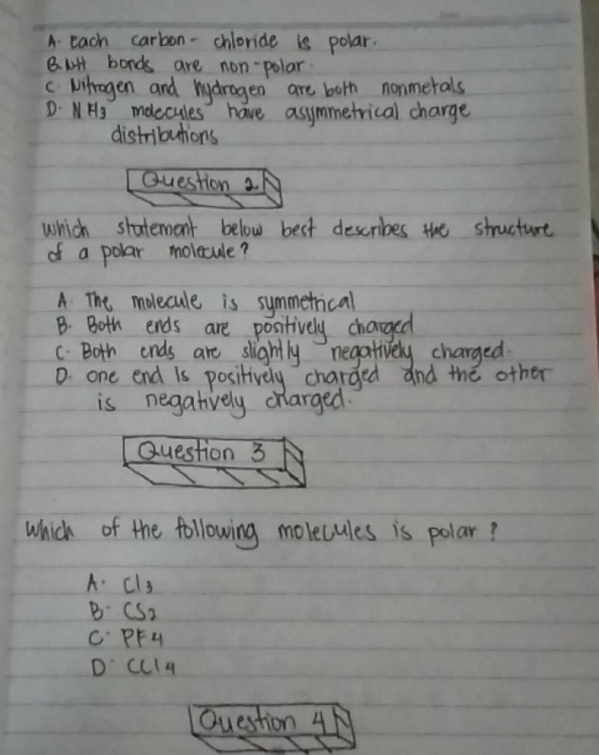 A. Each carbon - chloride is polar.
B. NH bonds are non-polar.
C. Nitrogen and hydrogen are both nonmetals
D. NH3 molecules have asymmetrical charge
distributions
Question 2
Which statement below best describes the structure
of a polar molecule?
A. The molecule is symmetrical
B. Both ends are positively charged
C. Both ends are slightly negatively charged.
D. one end is positively charged and the other
is negatively charged.
Question 3
Which of the following molecules is polar?
A. Cl3
B. CS2
C. PF4
D. CCl4
Question 4